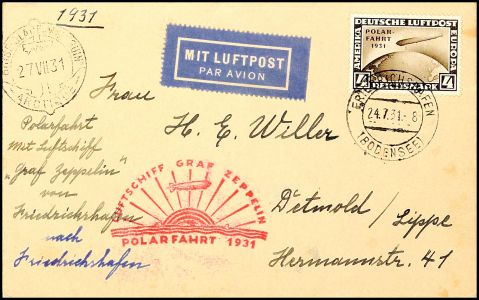 1931
MIT LUFTPOST
PAR AVION
DEUTSCHE LUFTPOST
AMERIKA
EUROPA
POLAR-
FAHRT
1931
4
4
REICHSMARK
27 VII 31
FRIEDRICHSHAFEN
24.7.31.-8
(BODENSEE)
Frau
H. E. Willer
Detmold / Lippe
Hermannstr. 41
Polarfahrt
mit Luftschiff
"Graf Zeppelin"
von
Friedrichshafen
nach
Friedrichshafen
LUFTSCHIFF GRAF ZEPPELIN
POLARFAHRT 1931